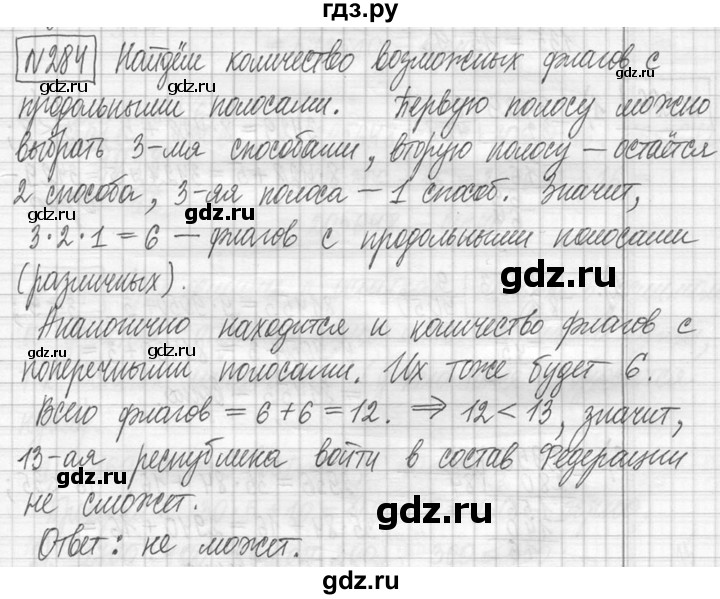 гдз.ру
№284 Найдём количество возможных флагов с
продольными полосами. Первую полосу можно
выбрать 3-мя способами, вторую полосу – остаётся
2 способа, 3-яя полоса – 1 способ. Значит,
3·2·1=6 – флагов с продольными полосами
(различных).
Аналогично находится и количество флагов с
поперечными полосами. Их тоже будет 6.
Всего флагов = 6+6=12. ⇒ 12<13, значит,
13-ая республика войти в состав Федерации
не сможет.
Ответ: не может.
gdz.ru
gdz.ru
gdz.ru
gdz.ru
gdz.ru
gdz.ru
gdz.ru
gdz.ru
gdz.ru
gdz.ru
gdz.ru